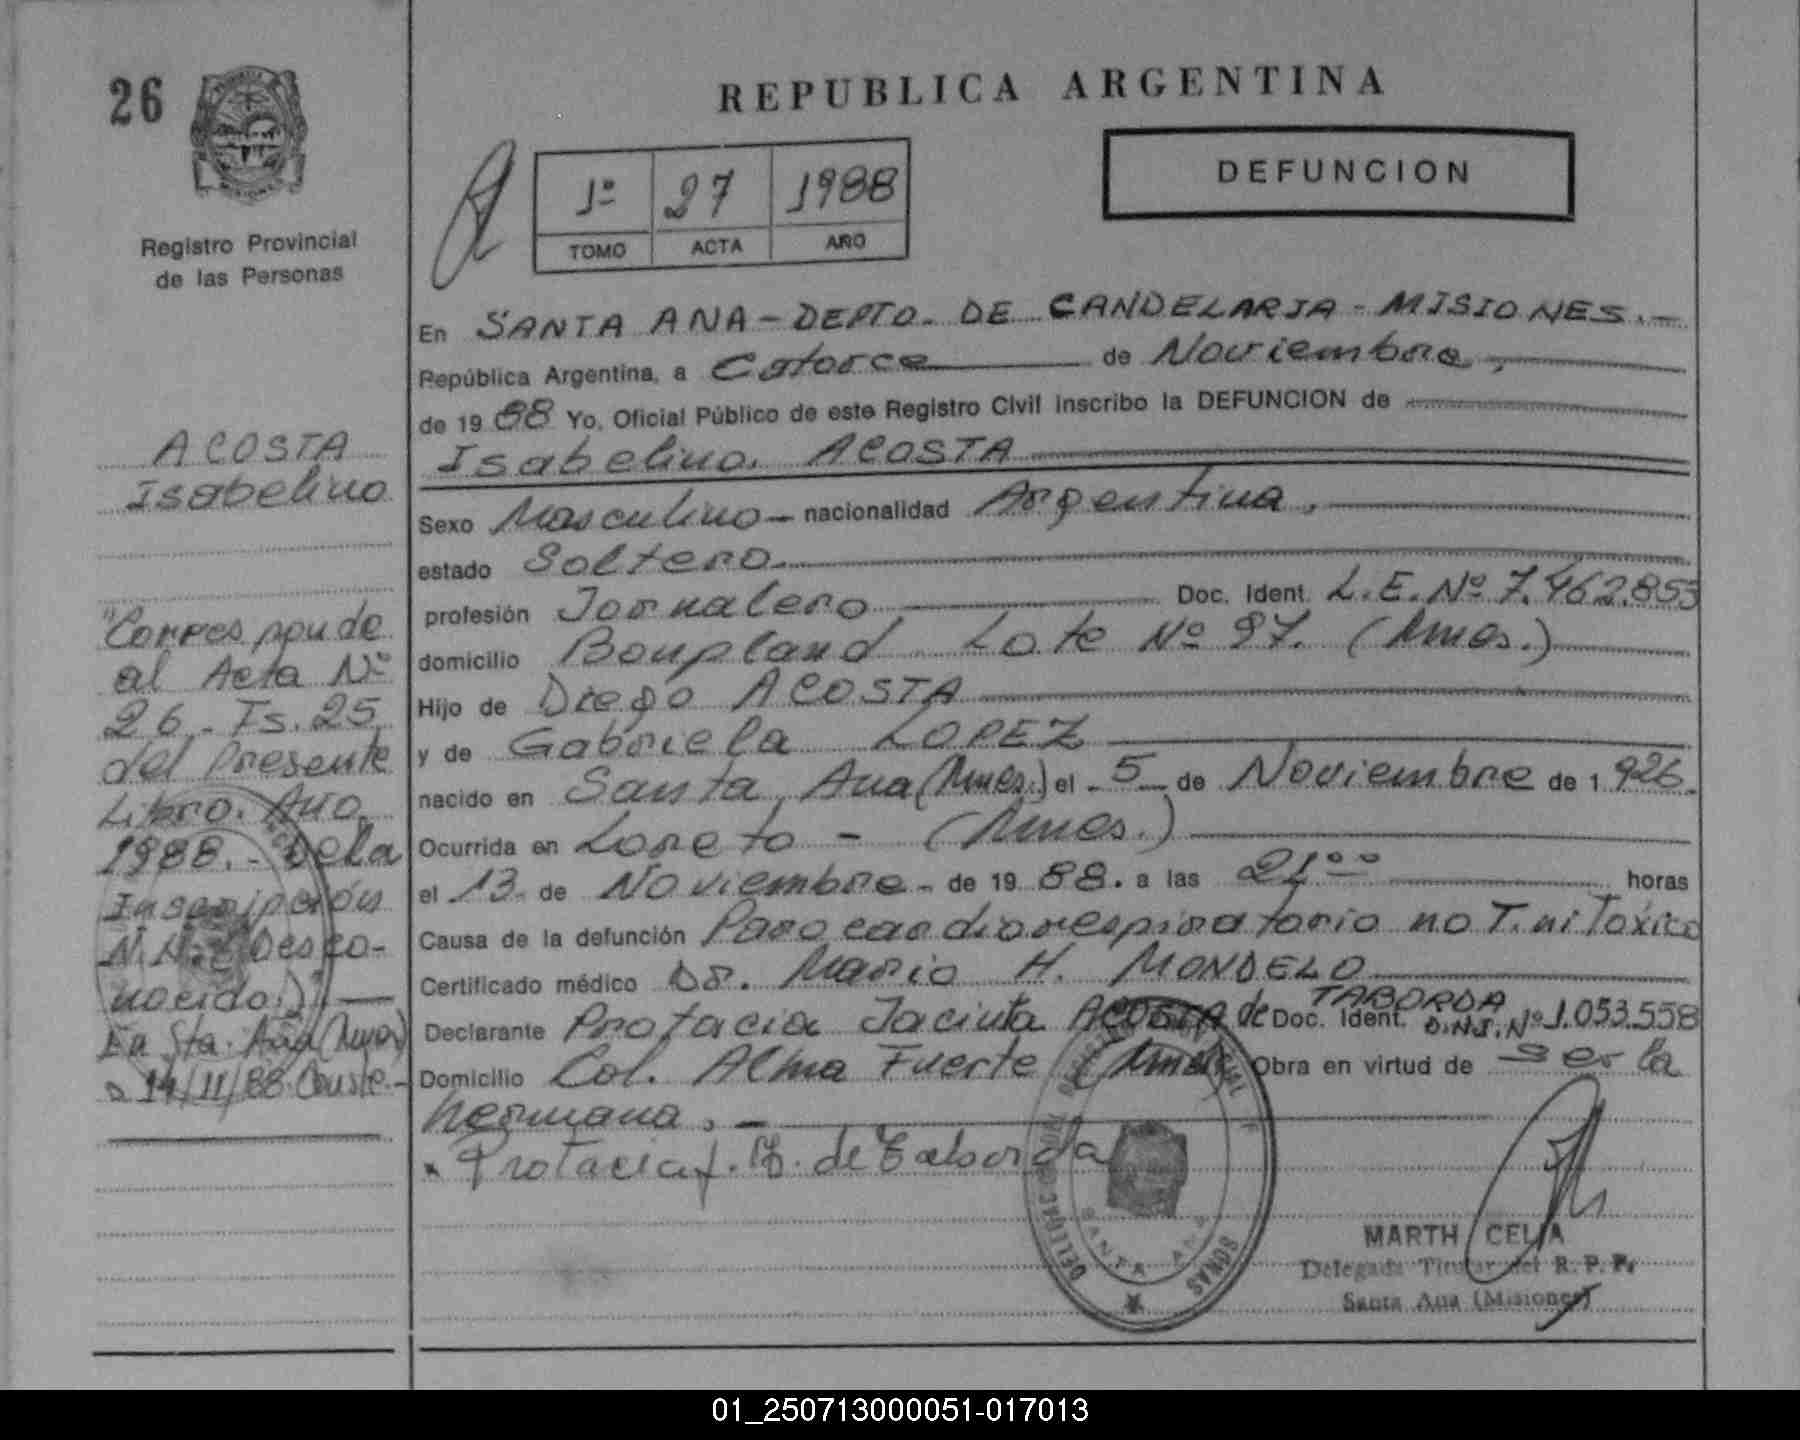 26
REPUBLICA ARGENTINA
DEFUNCION
1º 27 1988
TOMO ACTA AÑO
Registro Provincial
de las Personas
ACOSTA
Isabelino
"Corresponde
al Acta Nº
26 - Fs. 25
del Presente
Libro. Año
1988. - De la
Inscripción
N.N. (Desco-
nocido.)" —
En Sta. Ana (Mnes)
a 14/11/88. Conste. -
En SANTA ANA - DEPTO. DE CANDELARIA - MISIONES. -
República Argentina, a Catorce de Noviembre,
de 19 88 Yo, Oficial Público de este Registro Civil inscribo la DEFUNCION de
Isabelino. ACOSTA
Sexo Masculino - nacionalidad Argentina,
estado Soltero.
profesión Jornalero Doc. Ident. L.E. Nº 7.462.853
domicilio Bonpland Lote Nº 97. (Mnes.)
Hijo de Diego ACOSTA
y de Gabriela LOPEZ
nacido en Santa Ana (Mnes.) el 5 de Noviembre de 1 926.
Ocurrida en Loreto - (Mnes.)
el 13 de Noviembre - de 19 88. a las 21ºº horas
Causa de la defunción Paro cardiorespiratorio no T. ni Toxico
Certificado médico Dr. Mario H. MONDELO
Declarante Protacia Jacinta ACOSTA de TABORDA Doc. Ident. D.N.I. Nº 1.053.558
Domicilio Col. Alma Fuerte (Mnes) Obra en virtud de ser la
hermana. -
Protacia J. de Taborda
SANTA ANA
MARTH CELIA
Delegada Titular del R. P. P.
Santa Ana (Misiones)
01_250713000051-017013